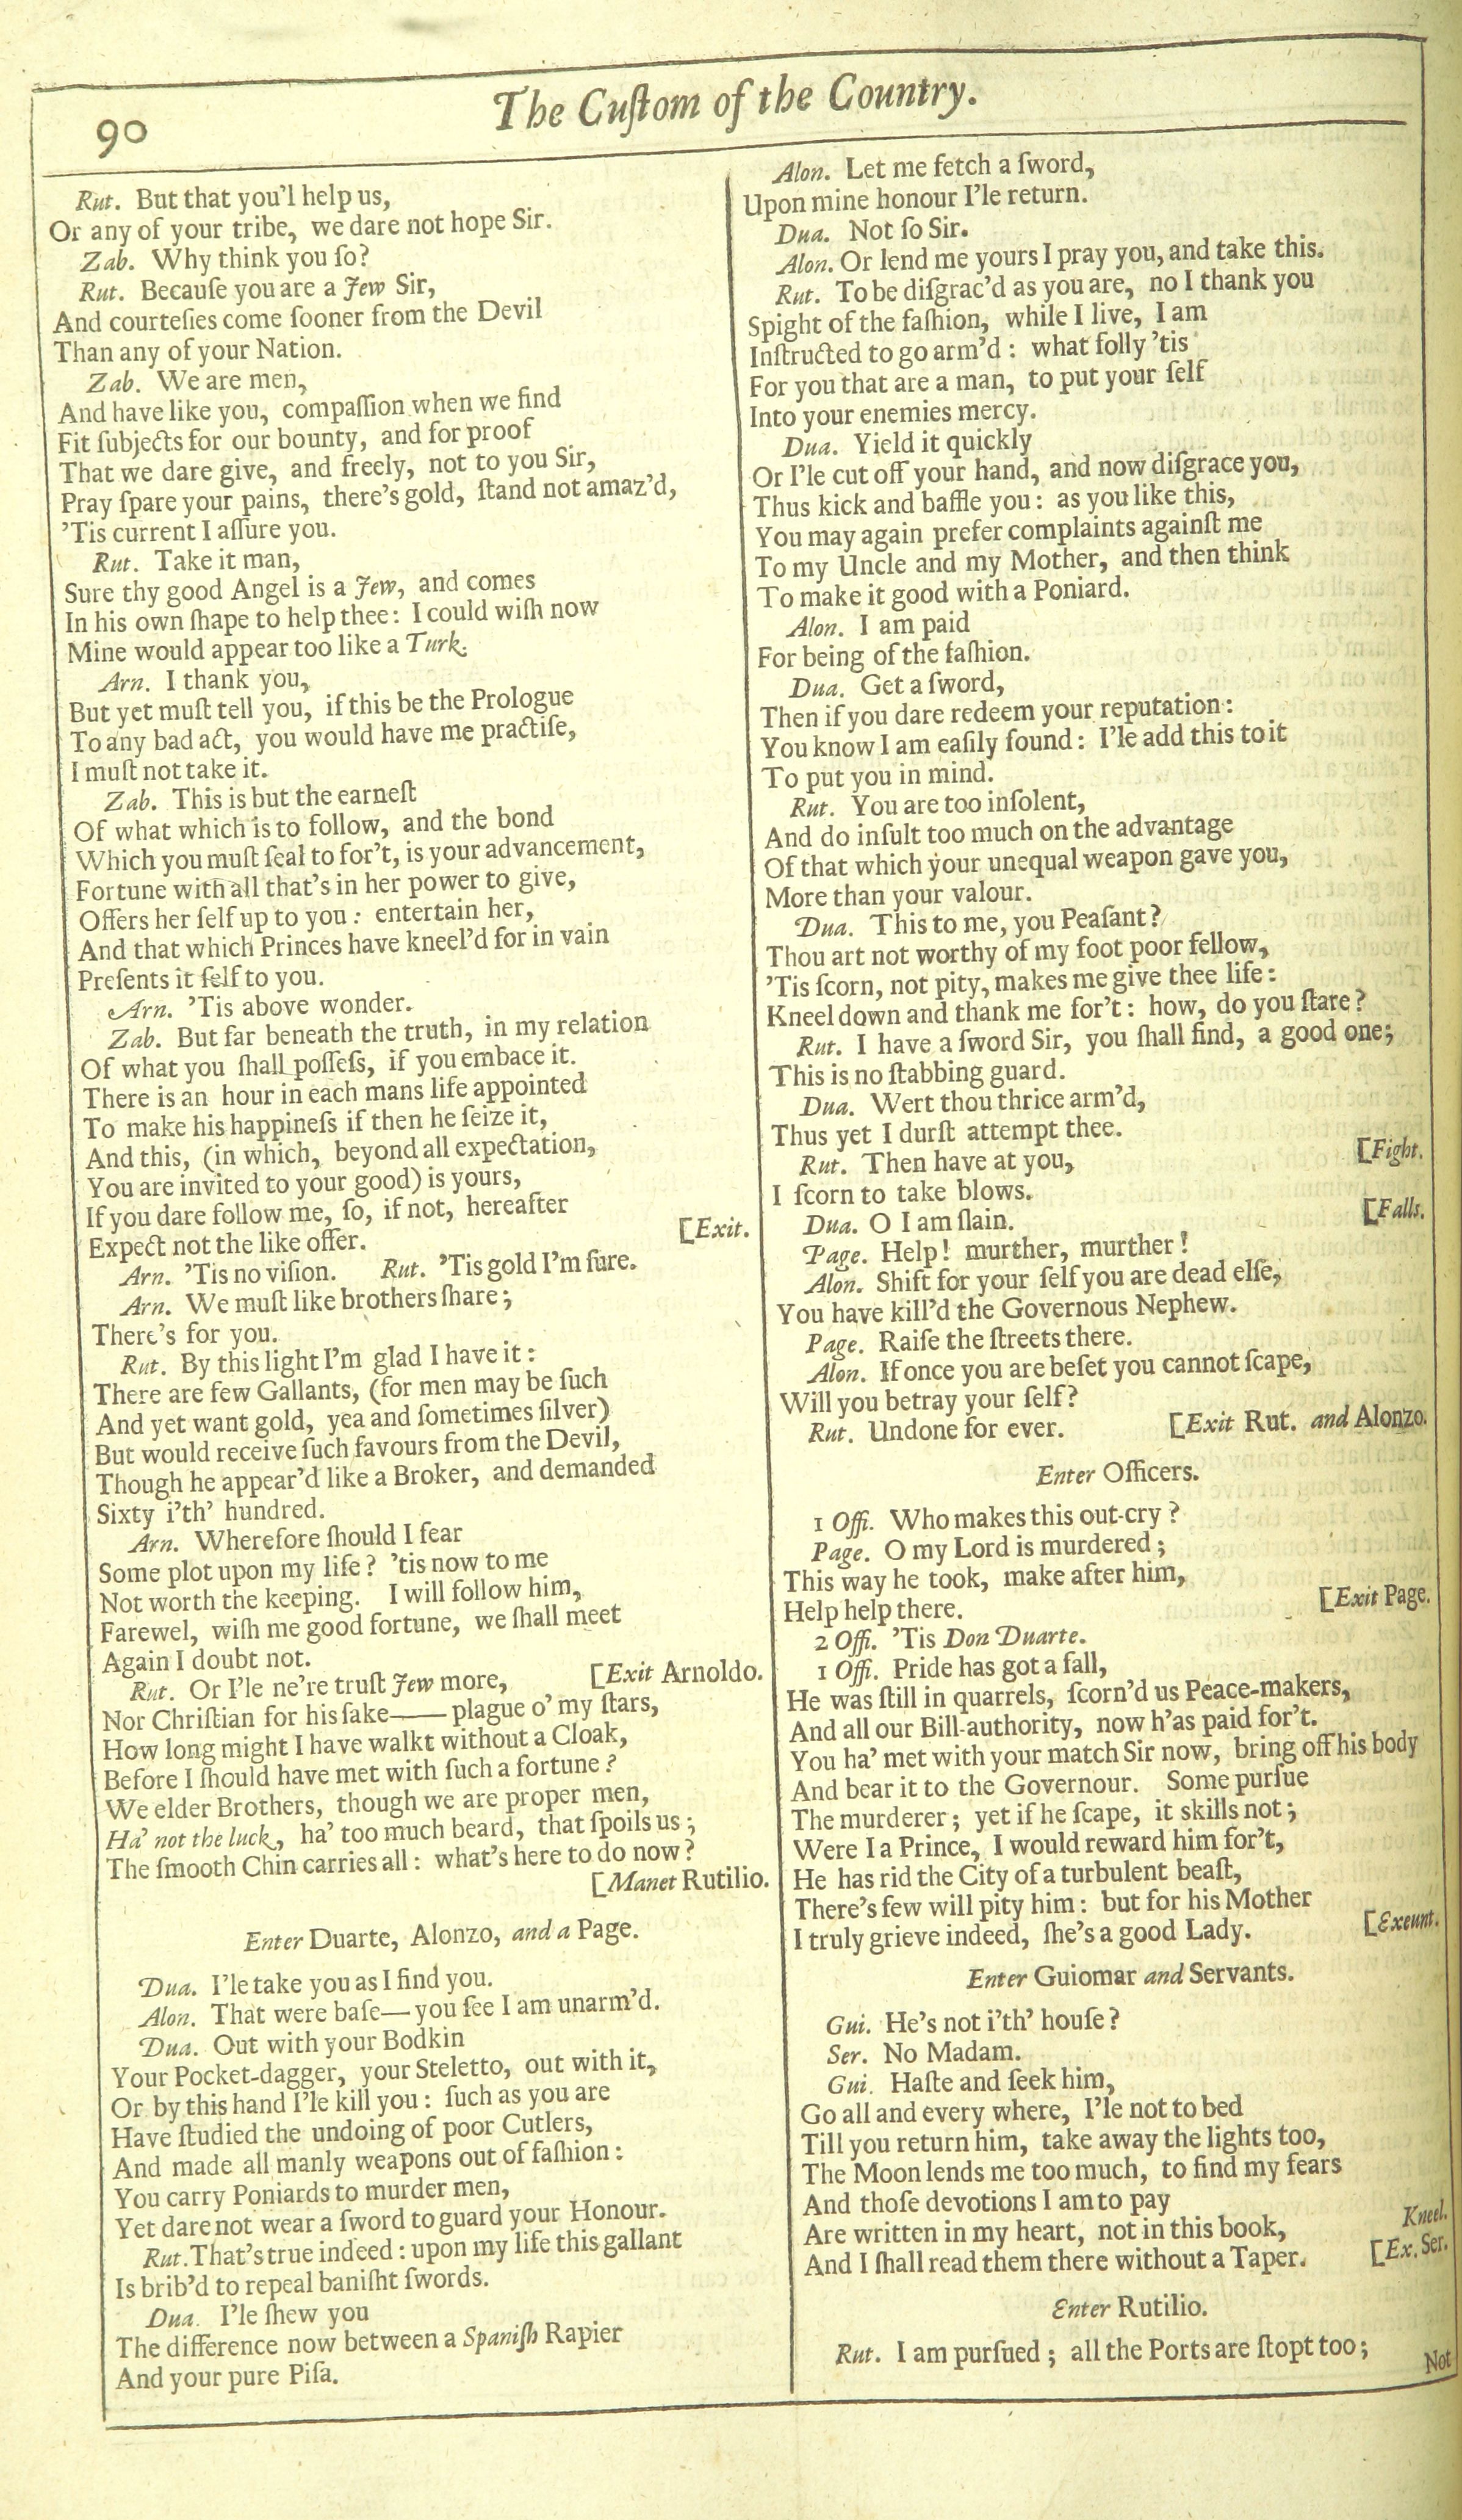 90
The Cuſtom of the Country.
Rut. But that you'l help us,
Or any of your tribe, we dare not hope Sir.
Zab. Why think you ſo?
Rut. Becauſe you are a Jew Sir,
And courteſies come ſooner from the Devil
Than any of your Nation.
Zab. We are men,
And have like you, compaſſion when we find
Fit ſubjects for our bounty, and for proof
That we dare give, and freely, not to you Sir,
Pray ſpare your pains, there's gold, ſtand not amaz'd,
'Tis current I aſſure you.
Rut. Take it man,
Sure thy good Angel is a Jew, and comes
In his own ſhape to help thee: I could wiſh now
Mine would appear too like a Turk.
Arn. I thank you,
But yet muſt tell you, if this be the Prologue
To any bad act, you would have me practiſe,
I muſt not take it.
Zab. This is but the earneſt
Of what which is to follow, and the bond
Which you muſt ſeal to for't, is your advancement,
Fortune with all that's in her power to give,
Offers her ſelf up to you: entertain her,
And that which Princes have kneel'd for in vain
Preſents it ſelf to you.
Arn. 'Tis above wonder.
Zab. But far beneath the truth, in my relation
Of what you ſhall poſſeſs, if you embace it.
There is an hour in each mans life appointed
To make his happineſs if then he ſeize it,
And this, (in which, beyond all expectation,
You are invited to your good) is yours,
If you dare follow me, ſo, if not, hereafter
Expect not the like offer. [Exit.
Arn. 'Tis no viſion. Rut. 'Tis gold I'm ſure.
Arn. We muſt like brothers ſhare;
There's for you.
Rut. By this light I'm glad I have it:
There are few Gallants, (for men may be ſuch
And yet want gold, yea and ſometimes ſilver)
But would receive ſuch favours from the Devil,
Though he appear'd like a Broker, and demanded
Sixty i'th' hundred.
Arn. Wherefore ſhould I fear
Some plot upon my life? 'tis now to me
Not worth the keeping. I will follow him,
Farewel, wiſh me good fortune, we ſhall meet
Again I doubt not. [Exit Arnoldo.
Rut. Or I'le ne're truſt Jew more,
Nor Chriſtian for his ſake—— plague o' my ſtars,
How long might I have walkt without a Cloak,
Before I ſhould have met with ſuch a fortune?
We elder Brothers, though we are proper men,
Ha' not the luck, ha' too much beard, that ſpoils us;
The ſmooth Chin carries all: what's here to do now?
[Manet Rutilio.
Enter Duarte, Alonzo, and a Page.
Dua. I'le take you as I find you.
Alon. That were baſe—you ſee I am unarm'd.
Dua. Out with your Bodkin
Your Pocket-dagger, your Steletto, out with it,
Or by this hand I'le kill you: ſuch as you are
Have ſtudied the undoing of poor Cutlers,
And made all manly weapons out of faſhion:
You carry Poniards to murder men,
Yet dare not wear a ſword to guard your Honour.
Rut. That's true indeed: upon my life this gallant
Is brib'd to repeal baniſht ſwords.
Dua. I'le ſhew you
The difference now between a Spaniſh Rapier
And your pure Piſa.
Alon. Let me fetch a ſword,
Upon mine honour I'le return.
Dua. Not ſo Sir.
Alon. Or lend me yours I pray you, and take this.
Rut. To be diſgrac'd as you are, no I thank you
Spight of the faſhion, while I live, I am
Inſtructed to go arm'd: what folly 'tis
For you that are a man, to put your ſelf
Into your enemies mercy.
Dua. Yield it quickly
Or I'le cut off your hand, and now diſgrace you,
Thus kick and baffle you: as you like this,
You may again prefer complaints againſt me
To my Uncle and my Mother, and then think
To make it good with a Poniard.
Alon. I am paid
For being of the faſhion.
Dua. Get a ſword,
Then if you dare redeem your reputation:
You know I am eaſily found: I'le add this to it
To put you in mind.
Rut. You are too inſolent,
And do inſult too much on the advantage
Of that which your unequal weapon gave you,
More than your valour.
Dua. This to me, you Peaſant?
Thou art not worthy of my foot poor fellow,
'Tis ſcorn, not pity, makes me give thee life:
Kneel down and thank me for't: how, do you ſtare?
Rut. I have a ſword Sir, you ſhall find, a good one;
This is no ſtabbing guard.
Dua. Wert thou thrice arm'd,
Thus yet I durſt attempt thee.
Rut. Then have at you, [Fight.
I ſcorn to take blows.
Dua. O I am ſlain. [Falls.
Page. Help! murther, murther!
Alon. Shift for your ſelf you are dead elſe,
You have kill'd the Governous Nephew.
Page. Raiſe the ſtreets there.
Alon. If once you are beſet you cannot ſcape,
Will you betray your ſelf?
Rut. Undone for ever. [Exit Rut. and Alonzo.
Enter Officers.
1 Offi. Who makes this out-cry?
Page. O my Lord is murdered;
This way he took, make after him,
Help help there. [Exit Page.
2 Offi. 'Tis Don Duarte.
1 Offi. Pride has got a fall,
He was ſtill in quarrels, ſcorn'd us Peace-makers,
And all our Bill-authority, now h'as paid for't.
You ha' met with your match Sir now, bring off his body
And bear it to the Governour. Some purſue
The murderer; yet if he ſcape, it skills not;
Were I a Prince, I would reward him for't,
He has rid the City of a turbulent beaſt,
There's few will pity him: but for his Mother
I truly grieve indeed, ſhe's a good Lady. [Exeunt.
Enter Guiomar and Servants.
Gui. He's not i'th' houſe?
Ser. No Madam.
Gui. Haſte and ſeek him,
Go all and every where, I'le not to bed
Till you return him, take away the lights too,
The Moon lends me too much, to find my fears
And thoſe devotions I am to pay
Are written in my heart, not in this book, Kneel.
And I ſhall read them there without a Taper. [Ex. Ser.
Enter Rutilio.
Rut. I am purſued; all the Ports are ſtopt too;
Not